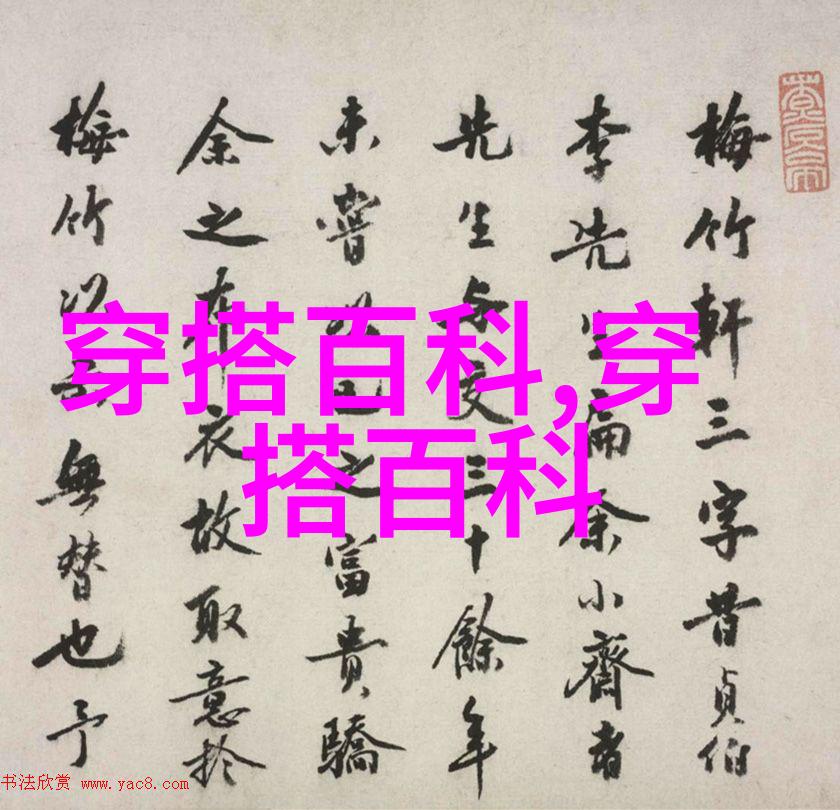 穿搭百科,穿
搭百科
梅竹軒三字昔貞伯
李先生扁余小齋者
先生与交三十餘年
未嘗以己之富貴驕
余之布衣故取意於
梅竹以無替也予
书法欣赏 www.yac8.com